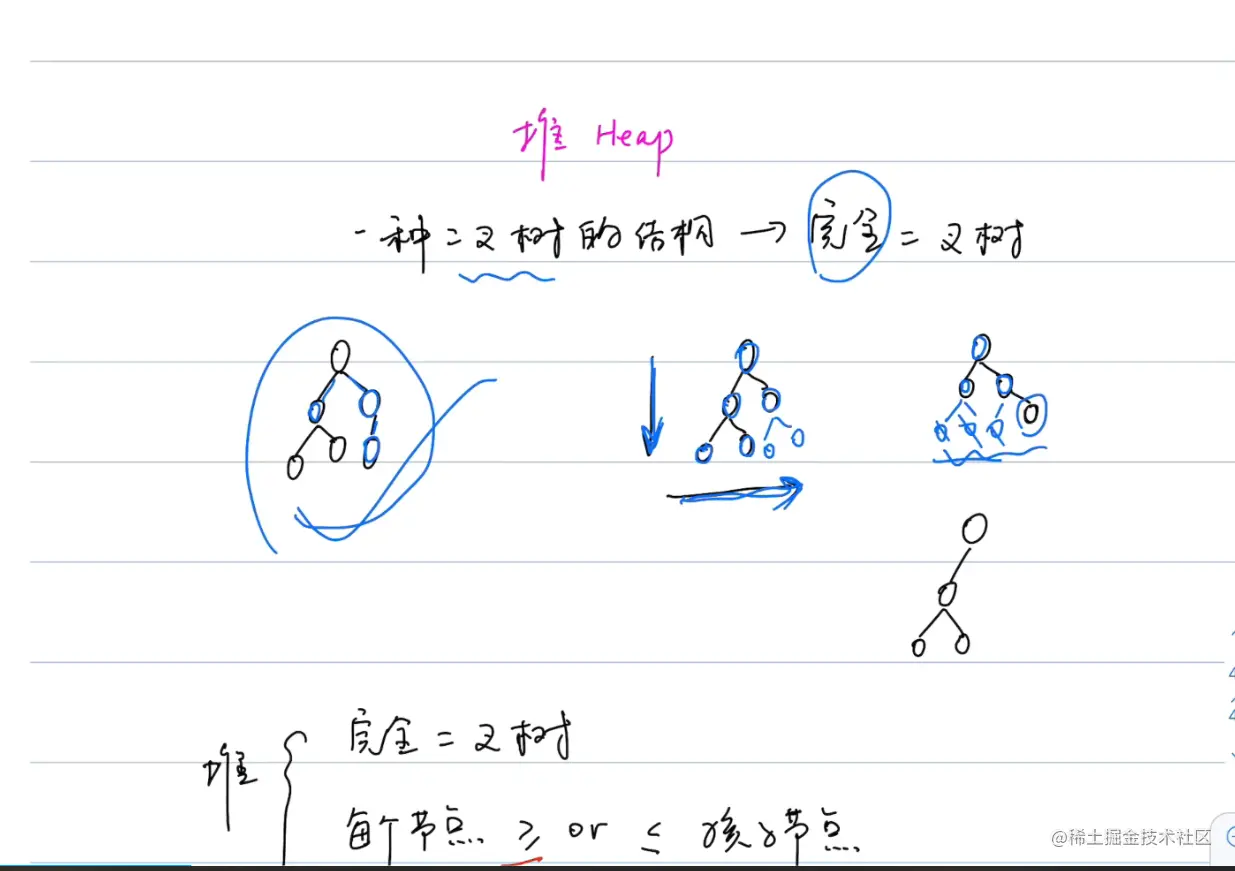 堆 Heap
一种二叉树的结构 → 完全二叉树
完全二叉树
堆 {
每个节点 ≥ or ≤ 孩子节点
@稀土掘金技术社区